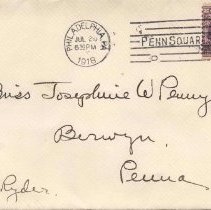 PHILADELPHIA, PA.
JUL 26
6 30 PM
1918
PENN SQUARE
Miss Josephine W Penny
Berwyn
Penna
Ryder.